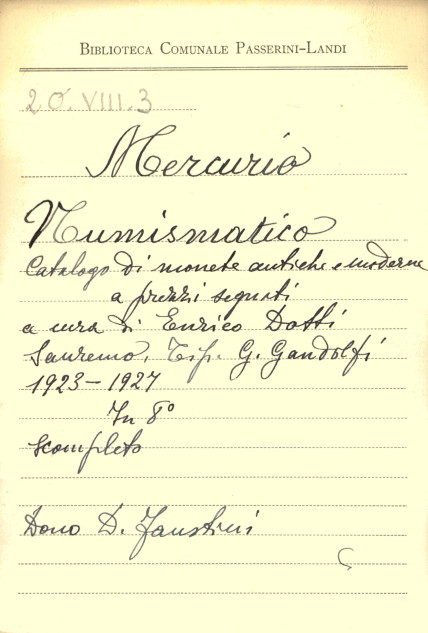 BIBLIOTECA COMUNALE PASSERINI-LANDI
20.VIII.3
Mercurio
Numismatico
Catalogo di monete antiche e moderne
a prezzi segnati
a cura di Enrico Dotti
Sanremo, Tip. G. Gandolfi
1923-1927
In 8°
Scompleto
Dono D. Faustini